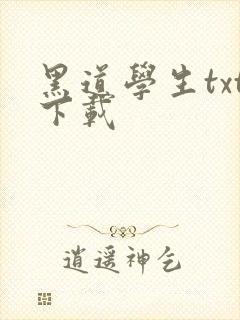 黑道學生txt
下載
逍遥神乞